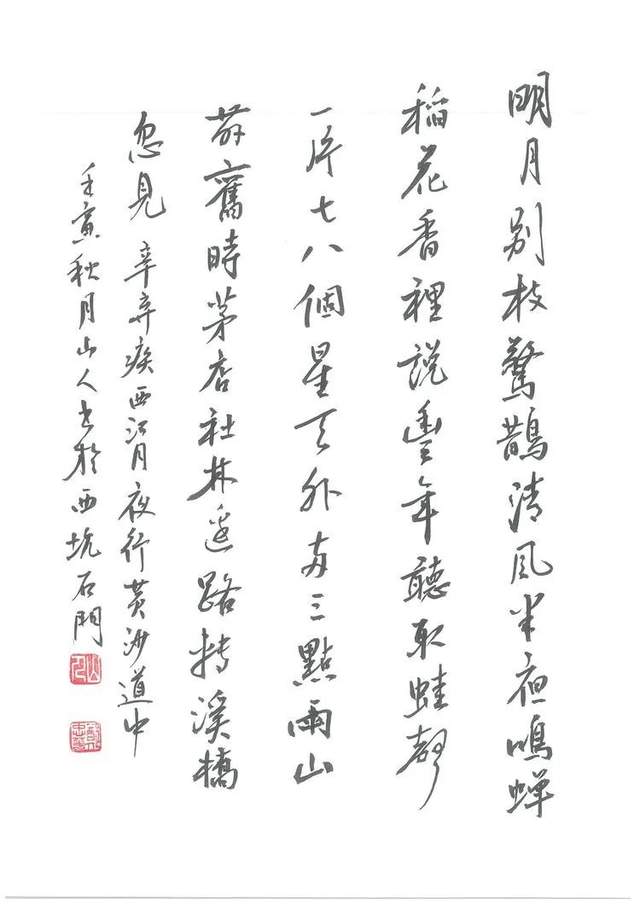 明月別枝驚鵲清風半夜鳴蟬
稻花香裡説豐年聽取蛙聲
一片七八個星天外兩三點雨山
前舊時茅店社林邊路轉溪橋
忽見 辛弃疾西江月夜行黄沙道中
壬寅秋月山人書於西坑石門
山人